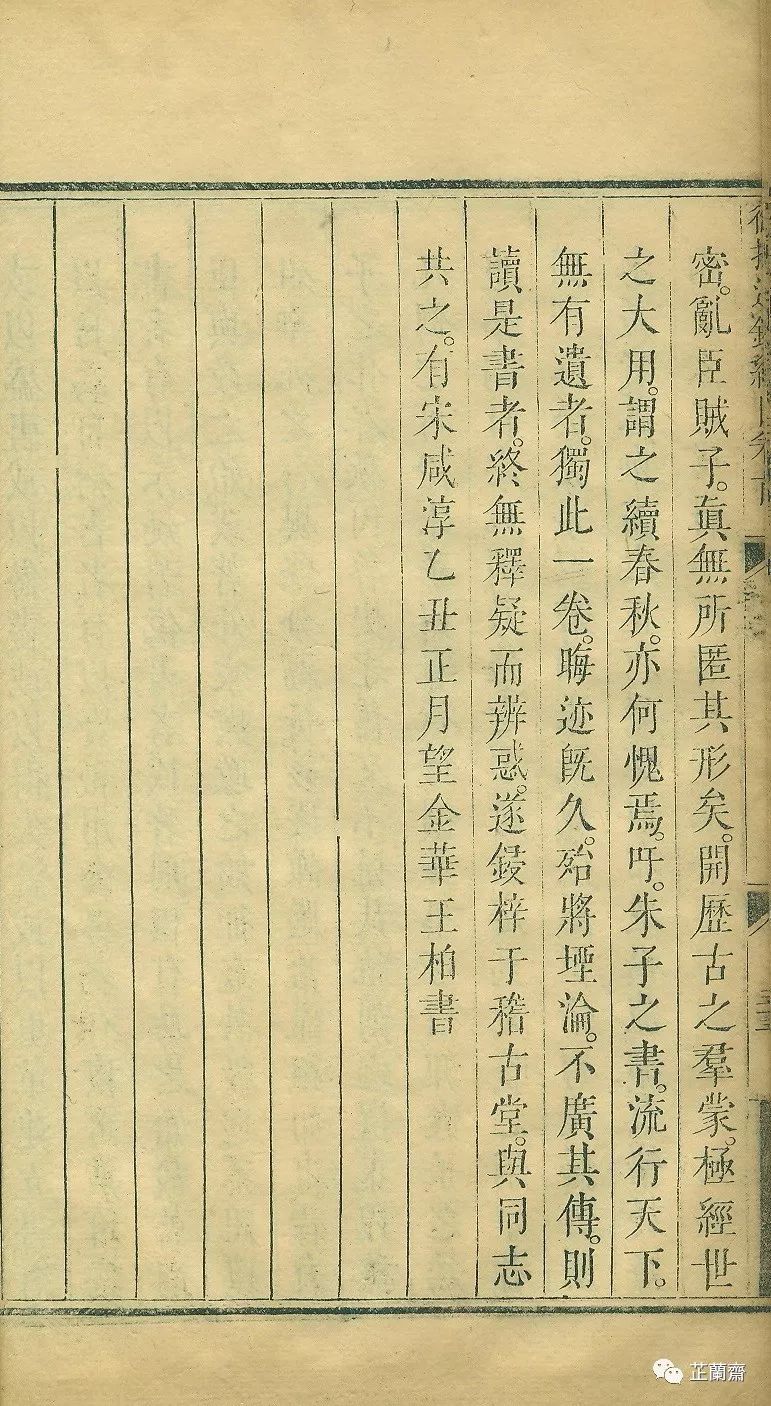 密。亂臣賊子。真無所匿其形矣。開歷古之羣蒙。極經世
之大用。謂之續春秋。亦何愧焉。吁。朱子之書。流行天下。
無有遺者。獨此一卷。晦迹既久。殆將堙淪。不廣其傳。則
讀是書者。終無釋疑而辨惑。遂鋟梓于稽古堂。與同志
共之。有宋咸淳乙丑正月望金華王柏書
芷蘭齋